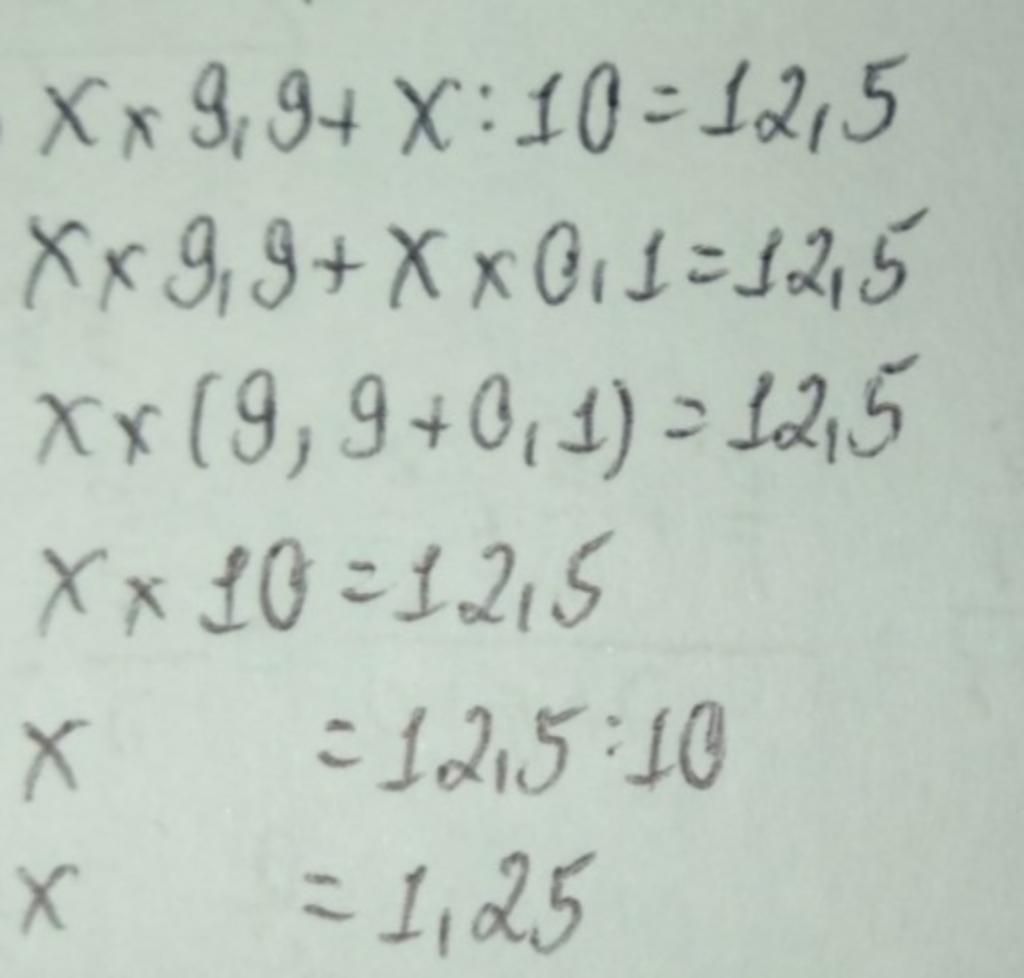 x × 9,9 + x : 10 = 12,5
x × 9,9 + x × 0,1 = 12,5
x × (9,9 + 0,1) = 12,5
x × 10 = 12,5
x = 12,5 : 10
x = 1,25